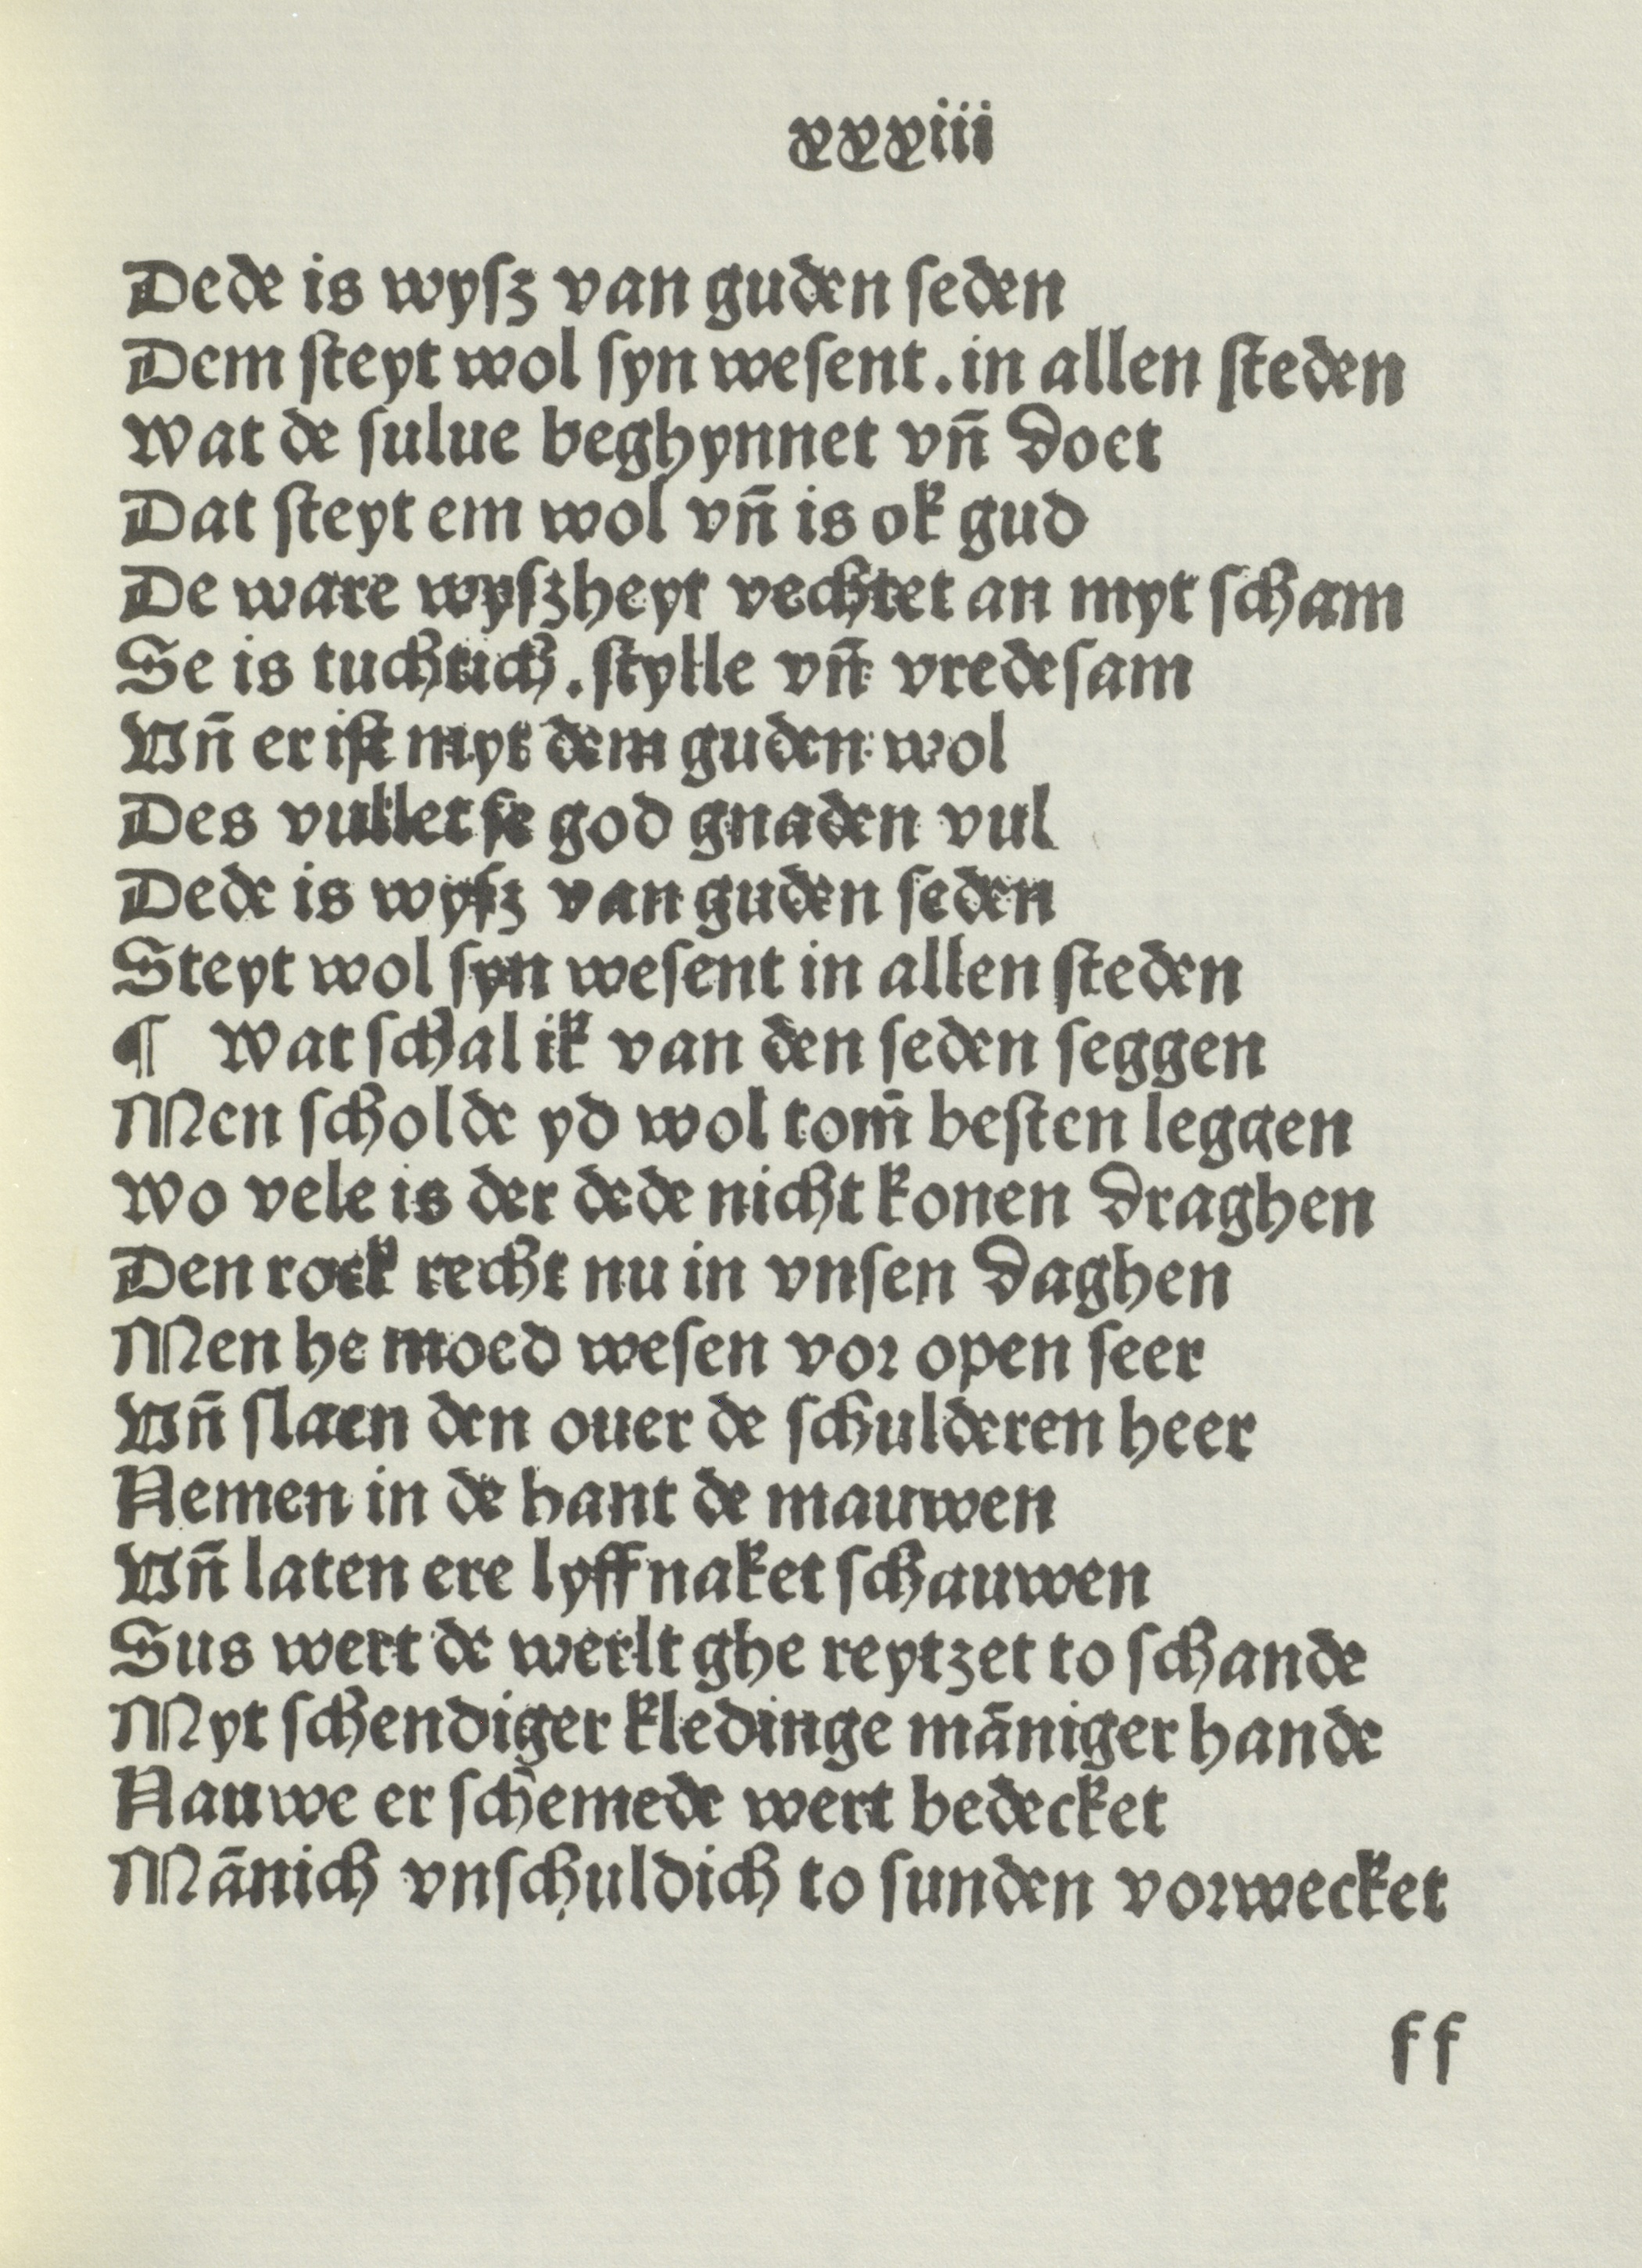 xxxiii
Dede is wyſz van guden ſeden
Dem ſteyt wol ſyn weſent. in allen ſteden
Wat de ſulue beghynnet vn̄ doet
Dat ſteyt em wol vn̄ is ok gud
De ware wyſzheyt vechtet an myt ſcham
Se is tuchtich. ſtylle vn̄ vredeſam
Vn̄ er iſt myt dem guden wol
Des vullet ſe god gnaden vul
Dede is wyſz van guden ſeden
Steyt wol ſyn weſent in allen ſteden
¶ Wat ſchal ik van den ſeden ſeggen
Men ſcholde yd wol tom̄ beſten leggen
Wo vele is der dede nicht konen draghen
Den rock recht nu in vnſen daghen
Men he moed weſen vor open ſeer
Vn̄ ſlaen den ouer de ſchulderen heer
Nemen in de hant de mauwen
Vn̄ laten ere lyff naket ſchauwen
Sus wert de werlt ghe reytzet to ſchande
Myt ſchendiger kledinge māniger hande
Nauwe er ſchemede wert bedecket
Mānich vnſchuldich to ſunden vorwecket
ff